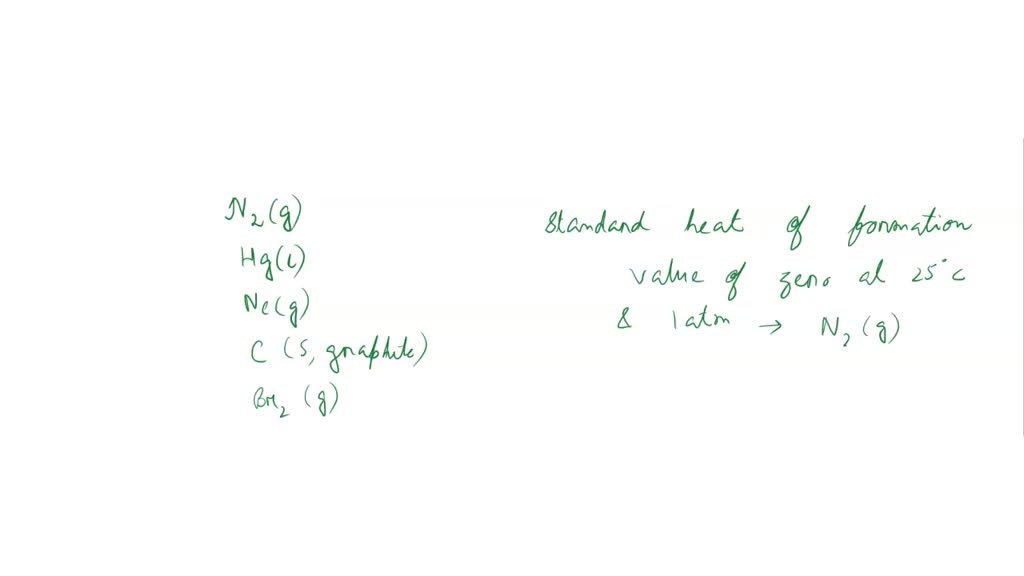 N2(g)
Hg(l)
Ne(g)
C (s, graphite)
Br2 (g)
Standard heat of formation
value of zero at 25°c
& 1 atm → N2(g)